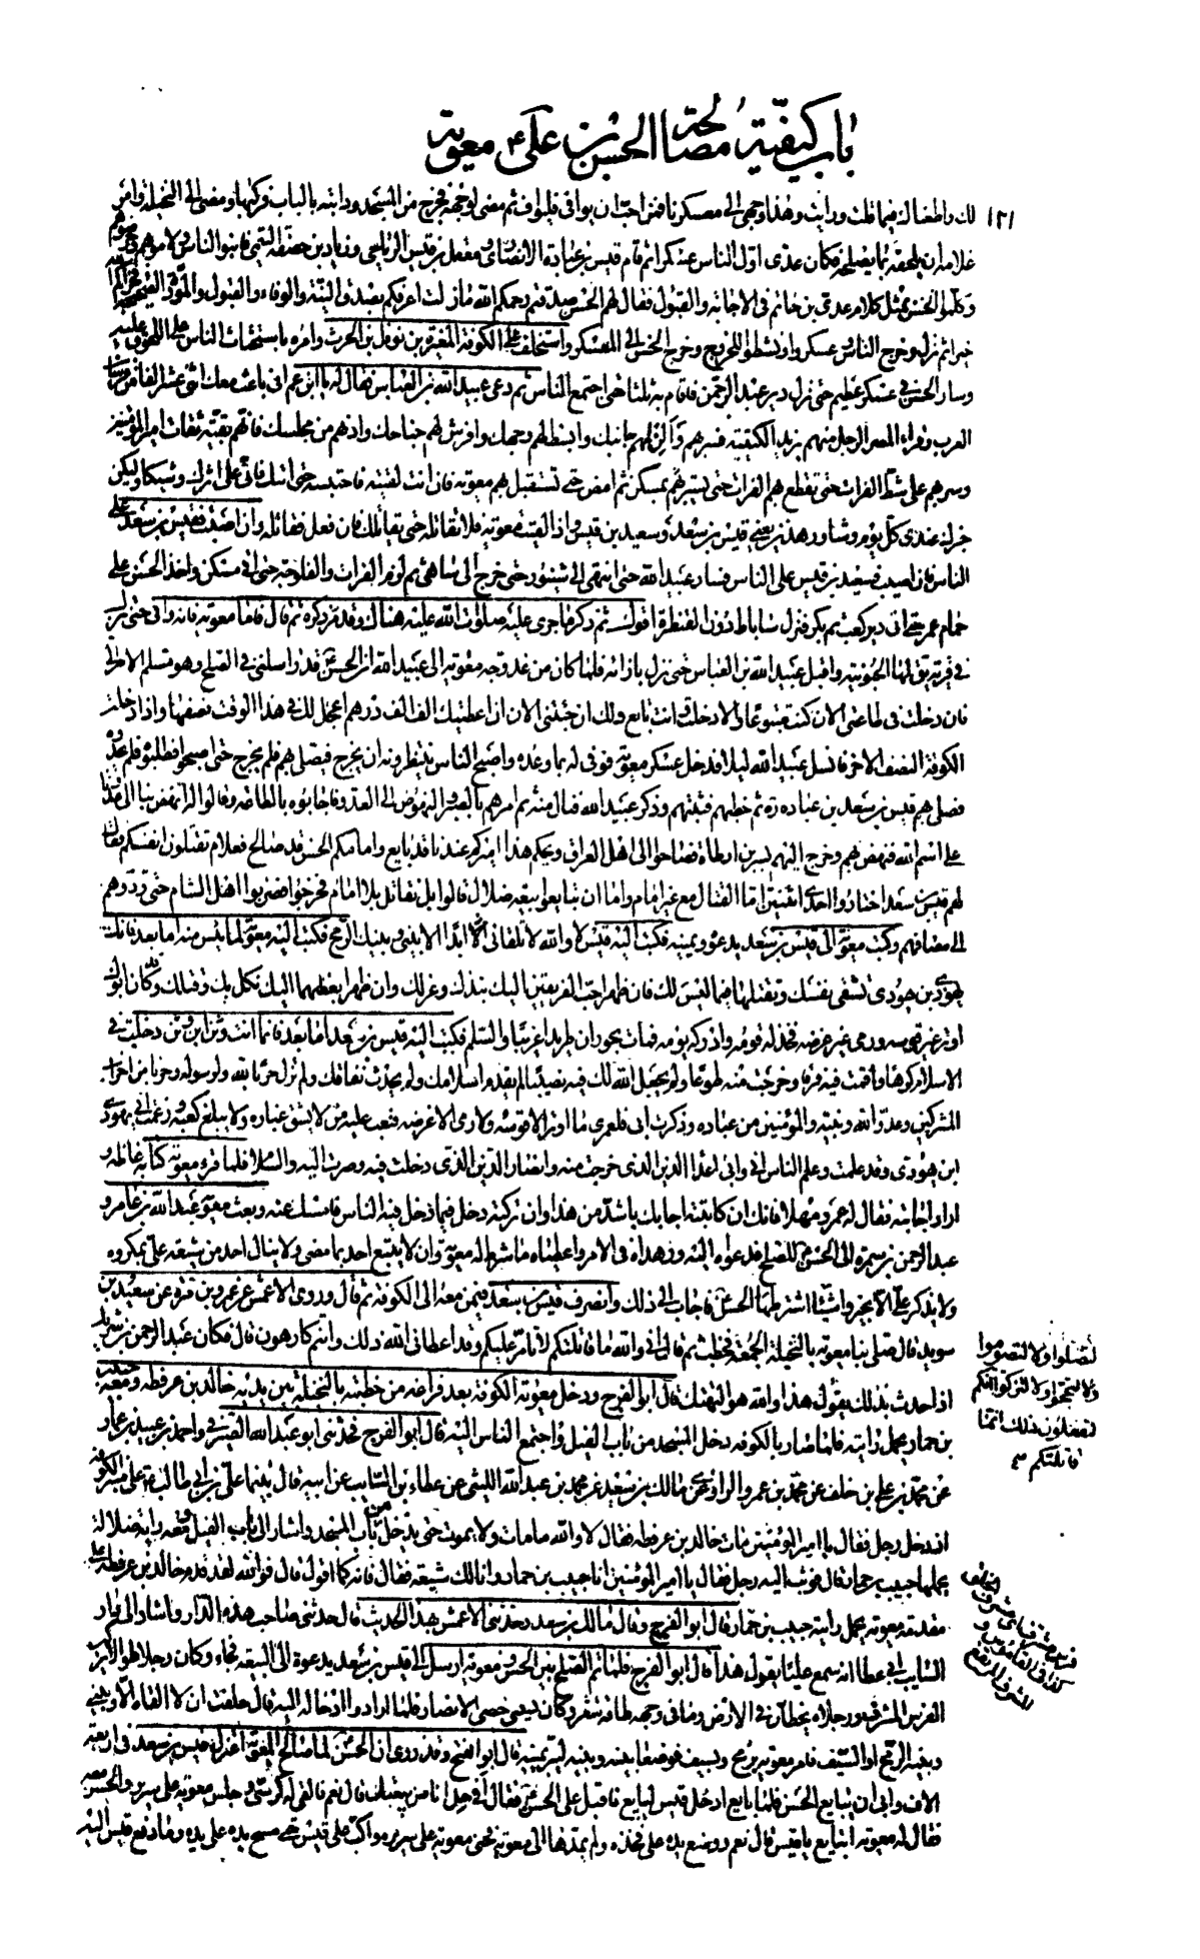 باب كيفية مصالحة الحسن بن علي ع معوية
لك واطعناك فيما قلت ورايت وهذا وجهي الى معسكرنا فمن احب ان يوافي فليواف ثم مضى لوجهه فخرج من المسجد ودابته بالباب فركبها ومضى الى النخيلة وامر
غلامه ان يلحقه بما يصلحه فكان عدي اول الناس عسكرا ثم قام قيس بن عبادة الانصاري ومعقل بن قيس الرياحي وزياد بن حصفة التيمي فانبوا الناس ولاموهم وحرضوهم
وكلموا الحسن بمثل كلام عدي بن حاتم في الاجابة والقبول فقال لهم الحسن صدقتم رحمكم الله ما زلت اعرفكم بصدق النية والوفاء والقبول والمودة الصحيحة فجزاكم الله
خيرا ثم نزل وخرج الناس وعسكروا ونشطوا للخروج وخرج الحسن الى المعسكر واستخلف على الكوفة المغيرة بن نوفل بن الحرث وامره باستحثاث الناس على اللحوق اليه
وسار الحسن في عسكر عظيم حتى نزل دير عبد الرحمن فاقام به ثلثا حتى اجتمع الناس ثم دعى عبيد الله بن العباس فقال له يا ابن عم اني باعث معك اثنى عشر الفا من فرسان
العرب وقراء المصر الرجل منهم يزيد الكتيبة فسر بهم والن لهم جانبك وابسط لهم وجهك وافرش لهم جناحك وادنهم من مجلسك فانهم بقية ثقات امير المؤمنين
وسر بهم على شط الفرات حتى تقطع بهم الفرات حتى تسير بهم بمسكن ثم امض حتى تستقبل بهم معوية فان انت لقيته فاحتبسه حتى اتيك فاني على اثرك وشيكا وليكن
خبرك عندي كل يوم وشاور هذين يعني قيس بن سعد وسعيد بن قيس واذا لقيت معوية فلا تقاتله حتى يقاتلك فان فعل فقاتله وان اصبت فقيس بن سعد على
الناس فان اصيب فسعيد بن قيس على الناس فسار عبيد الله حتى انتهى الى شينور حتى خرج الى شاهي ثم لزم الفرات والفلوجة حتى اتى مسكن واخذ الحسن على
حمام عمر حتى اتى دير كعب ثم بكر فنزل ساباط دون القنطرة اقول ثم ذكر ما جرى عليه صلوات الله عليه هناك وقد مر ذكره ثم قال فاما معوية فانه وافى حتى نزل
في قرية يق لها الحبونية واقبل عبيد الله بن العباس حتى نزل بازائه فلما كان من غد وجه معوية الى عبيد الله ان الحسن قد راسلني في الصلح وهو مسلم الامر الي
فان دخلت في طاعتي الان كنت متبوعا والا دخلت وانت تابع ولك ان جئتني الان ان اعطيك الف الف درهم اعجل لك في هذا الوقت نصفها واذا دخلت
الكوفة النصف الاخر فانسل عبيد الله ليلا فدخل عسكر معوية فوفى له بما وعده واصبح الناس ينتظرونه ان يخرج فيصلي بهم فلم يخرج حتى اصبحوا فطلبوه فلم يجدوه
فصلى بهم قيس بن سعد بن عباده ره ثم خطبهم فثبتهم وذكر عبيد الله فنال منه ثم امرهم بالصبر والنهوض الى العدو فاجابوه بالطاعة وقالوا له انهض بنا الى عدونا
على اسم الله فنهض بهم وخرج اليهم بسر بن ارطاة فصاحوا الى اهل العراق ويحكم هذا اميركم عندنا قد بايع وامامكم الحسن قد صالح فعلام تقتلون انفسكم فقال
لهم قيس بن سعد اختاروا احدى اثنتين اما القتال مع غير امام واما ان تبايعوا بيعة ضلال قالوا بل نقاتل بلا امام فخرجوا فضربوا اهل الشام حتى ردوهم
الى مصافهم وكتب معوية الى قيس بن سعد يدعوه ويمنيه فكتب اليه قيس لا والله لا تلقاني ابدا الا بيني وبينك الرمح فكتب اليه معوية لما يئس منه اما بعد فانك
يهودي بن يهودي تشقي نفسك وتقتلها فيما ليس لك فان ظهر احب الفريقين اليك نبذك وعزلك وان ظهر ابغضهما اليك نكل بك وقتلك وقد كان ابوك
اوتر غير قوسه ورمى غير غرضه فخذله قومه وادركه يومه فمات بحوران طريدا غريبا والسلم فكتب اليه قيس بن سعد اما بعد فانما انت وثن ابن وثن دخلت في
الاسلام كرها واقمت فيه فرقا وخرجت منه طوعا ولم يجعل الله لك فيه نصيبا لم يقدم اسلامك ولم يحدث نفاقك ولم تزل حربا لله ولرسوله وحزبا من احزاب
المشركين وعدو الله ونبيه والمؤمنين من عباده وذكرت ابي فلعمري ما اوتر الا قوسه ولا رمى الا غرضه فشغب عليه من لا يشق غباره ولا يبلغ كعبه وزعمت اني يهودي
ابن يهودي وقد علمت وعلم الناس اني وابي اعداء الدين الذي خرجت منه وانصار الدين الذي دخلت فيه وصرت اليه والسلام فلما قرء معوية كتابه غاظه و
اراد اجابته فقال له عمرو مهلا فانك ان كاتبته اجابك باشد من هذا وان تركته دخل فيما دخل فيه الناس فامسك عنه وبعث معوية عبد الله بن عامر و
عبد الرحمن بن سمرة الى الحسن للصلح فدعواه اليه وزهداه في الامر واعطياه ما شرط له معوية وان لا يتبع احد بما مضى ولا ينال احد من شيعة علي بمكروه
ولا يذكر علي الا بخير واشياء اشترطها الحسن فاجاب الى ذلك وانصرف قيس بن سعد فيمن معه الى الكوفة ثم قال وروى الاعمش عن عمرو بن مرة عن سعيد بن
سويد قال صلى بنا معوية بالنخيلة الجمعة فخطب ثم قال اني والله ما قاتلتكم لاتأمر عليكم وقد اعطاني الله ذلك وانتم كارهون قال فكان عبد الرحمن بن شريك
اذا حدث بذلك يقول هذا والله هو التهتك قال ابو الفرج ودخل معوية الكوفة بعد فراغه من خطبته بالنخيلة بين يديه خالد بن عرفطة ومعه حبيب
بن حمار يحمل رايته فلما صار بالكوفه دخل المسجد من باب الفيل واجتمع الناس اليه قال ابو الفرج فحدثني ابو عبد الله الصيرفي واحمد بن عبيد بن عمار
عن محمد بن علي بن خلف عن محمد بن عمرو الرازي عن مالك بن سعيد عن محمد بن عبد الله الليثي عن عطاء بن السايب عن ابيه قال بينما علي بن ابي طالب ع على منبر الكوفة
اذ دخل رجل فقال يا امير المؤمنين مات خالد بن عرفطة فقال لا والله ما مات ولا يموت حتى يدخل من باب المسجد واشار الى باب الفيل ومعه راية ضلالة
يحملها حبيب بن حمار قال فوثب اليه رجل فقال يا امير المؤمنين انا حبيب بن حمار وانا لك شيعة فقال فانه كما اقول قال فوالله لقد قدم خالد بن عرفطة على
مقدمة معوية يحمل رايته حبيب بن حمار قال ابو الفرج وقال مالك بن سعيد وحدثني الاعمش بهذا الحديث قال حدثني صاحب هذه الدار واشار الى دار
السايب ابي عطا انه سمع عليا يقول هذا قال ابو الفرج فلما تم الصلح بين الحسن ومعوية ارسل الى قيس بن سعد يدعوه الى البيعة فجاء وكان رجلا طوالا يركب
الفرس المشرف ورجلاه يخطان في الارض وما في وجهه طاقة شعر وكان يسمى خصي الانصار فلما ارادوا ادخاله اليه قال حلفت ان لا القاه الا وبيني
وبينه الرمح او السيف فامر معوية برمح وبسيف فوضعا بينه وبينه ليبر يمينه قال ابو الفرج وقد روى ان الحسن لما صالح معوية اعتزل قيس بن سعد في اربعة
الاف وابى ان يبايع الحسن فلما بايع ادخل قيس ليبايع فاقبل على الحسن فقال افي حل انا من بيعتك قال نعم فالقى له كرسي وجلس معوية على سرير والحسن معه
فقال له معوية اتبايع يا قيس قال نعم ووضع يده على فخذه ولم يمدها الى معوية فحنى معوية على سريره واكب على قيس حتى مسح يده على يده وما رفع قيس اليه
لتصلوا ولا لتصوموا
ولا لتحجوا ولا لتزكوا انكم
لتفعلون ذلك انما
قاتلتكم